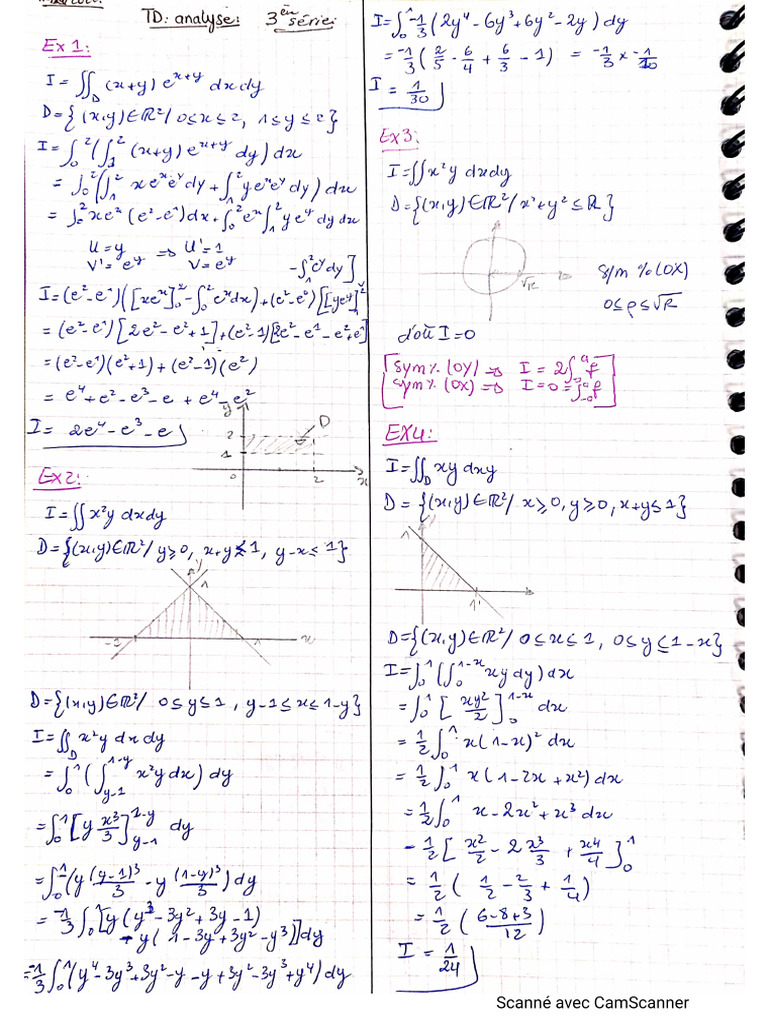 TD: analyse: 3 èn série:
Ex 1:
I = ∬_D (x+y) e^{x+y} dx dy
D = {(x,y) ∈ ℝ² / 0 ≤ x ≤ 2, 1 ≤ y ≤ 2}
I = ∫_0^2 (∫_1^2 (x+y) e^{x+y} dy) dx
= ∫_0^2 (∫_1^2 x e^x e^y dy + ∫_1^2 y e^x e^y dy) dx
= ∫_0^2 x e^x (e²-e¹) dx + ∫_0^2 e^x ∫_1^2 y e^y dy dx
U = y ⇒ U' = 1
V' = e^y V = e^y
- ∫_1^2 e^y dy]
I = (e²-e¹)([x e^x]_0^2 - ∫_0^2 e^x dx) + (e²-e⁰)[[y e^y]_1^2
= (e²-e¹)[2e²-e²+1] + (e²-1)[2e²-e¹-e²+e¹]
= (e²-e¹)(e²+1) + (e²-1)(e²)
= e⁴+e²-e³-e+e⁴-e²
I = 2e⁴-e³-e
y
D
2
1
0 2 x
Ex 2:
I = ∬ x²y dx dy
D = {(x,y) ∈ ℝ² / y ≥ 0, x+y ≤ 1, y-x ≤ 1}
y
1
-1 1 x
D = {(x,y) ∈ ℝ² / 0 ≤ y ≤ 1, y-1 ≤ x ≤ 1-y}
I = ∬_D x²y dx dy
= ∫_0^1 (∫_{y-1}^{1-y} x²y dx) dy
= ∫_0^1 [y x³/3]_{y-1}^{1-y} dy
= ∫_0^1 (y (y-1)³/3 - y (1-y)³/3) dy
= -1/3 ∫_0^1 [y(y³-3y²+3y-1)
- y(1-3y+3y²-y³)] dy
= -1/3 ∫_0^1 (y⁴-3y³+3y²-y-y+3y²-3y³+y⁴) dy
I = ∫_0^1 -1/3 (2y⁴-6y³+6y²-2y) dy
= -1/3 (2/5 - 6/4 + 6/3 - 1) = -1/3 × -1/10
I = 1/30
Ex3:
I = ∬ x²y dx dy
D = {(x,y) ∈ ℝ² / x²+y² ≤ R}
√R
sym % (OX)
0 ≤ ρ ≤ √R
d'où I = 0
[sym % (OY) ⇒ I = 2∫_0^a f
sym % (OX) ⇒ I = 0 = ∫_{-a}^a f]
EX4:
I = ∬_D xy dxy
D = {(x,y) ∈ ℝ² / x ≥ 0, y ≥ 0, x+y ≤ 1}
1
1
D = {(x,y) ∈ ℝ² / 0 ≤ x ≤ 1, 0 ≤ y ≤ 1-x}
I = ∫_0^1 (∫_0^{1-x} xy dy) dx
= ∫_0^1 [xy²/2]_0^{1-x} dx
= 1/2 ∫_0^1 x(1-x)² dx
= 1/2 ∫_0^1 x(1-2x+x²) dx
= 1/2 ∫_0^1 x-2x²+x³ dx
- 1/2 [x²/2 - 2x³/3 + x⁴/4]_0^1
= 1/2 (1/2 - 2/3 + 1/4)
= 1/2 (6-8+3/12)
I = 1/24
Scanné avec CamScanner